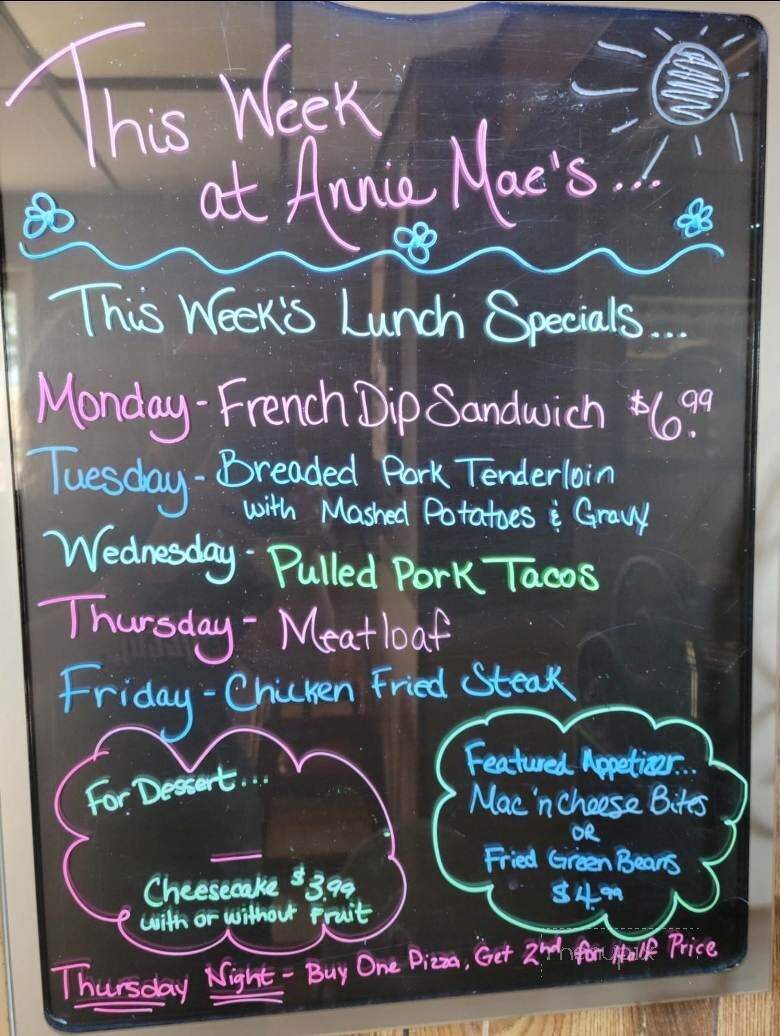 This Week
at Annie Mae's...
This Week's Lunch Specials...
Monday - French Dip Sandwich $6.99
Tuesday - Breaded Pork Tenderloin
with Mashed Potatoes & Gravy
Wednesday - Pulled Pork Tacos
Thursday - Meatloaf
Friday - Chicken Fried Steak
For Dessert...
Cheesecake $3.99
with or without Fruit
Featured Appetizer...
Mac 'n Cheese Bites
OR
Fried Green Beans
$4.99
Thursday Night - Buy One Pizza, Get 2nd for Half Price
menupix